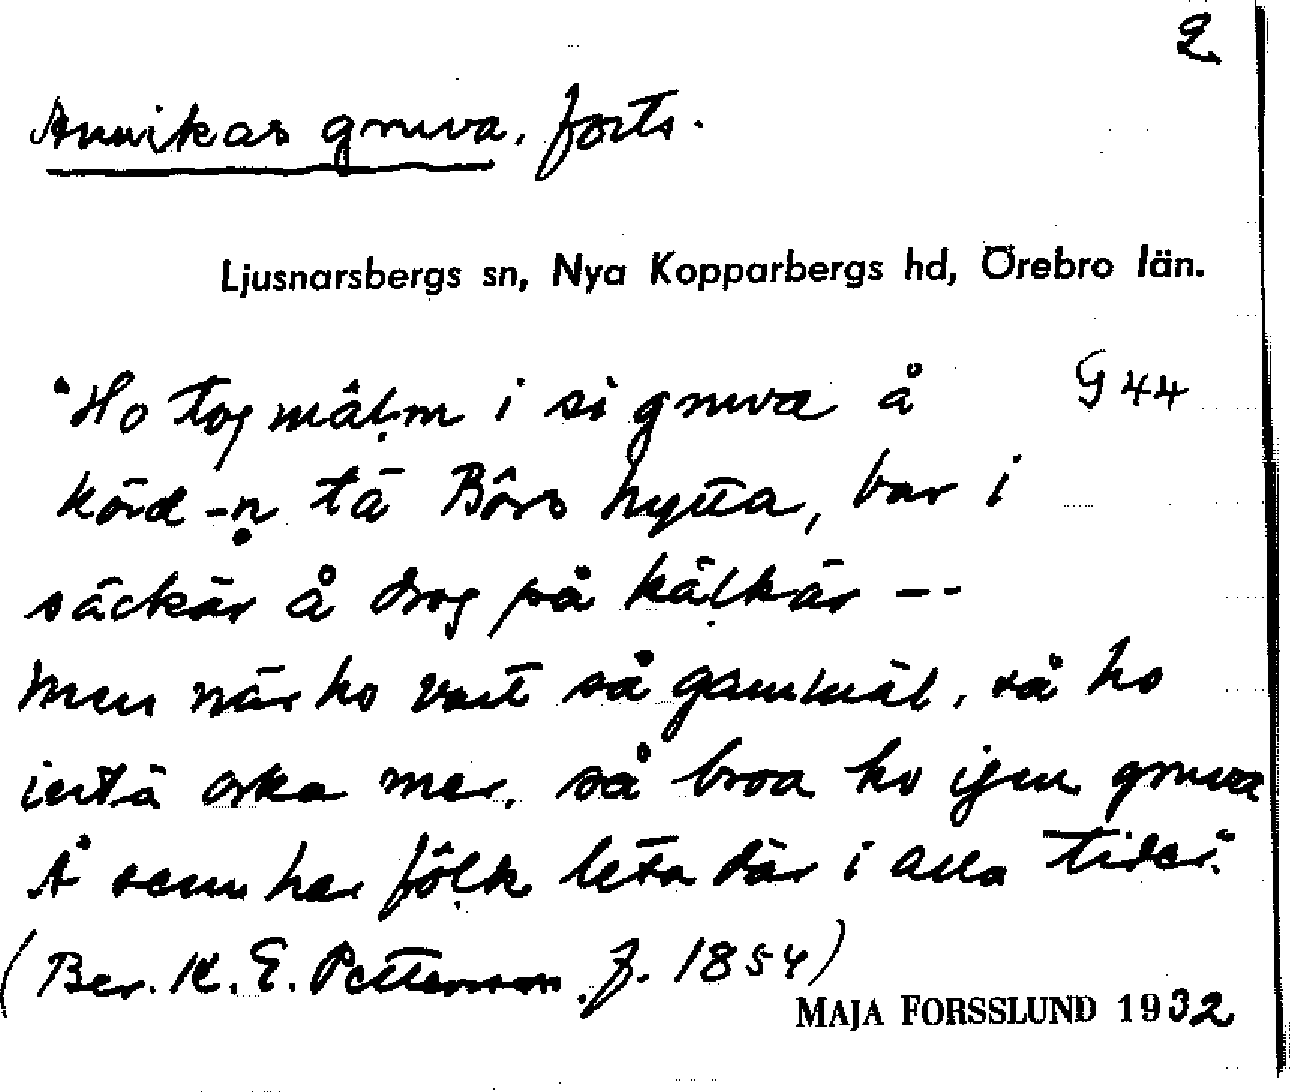 2
Annikas gruva. forts.
Ljusnarsbergs sn, Nya Kopparbergs hd, Örebro län.
"Ho tog mâḷm i si gruva å G 44
körd-n tä Bôrs hytta, bar i
säckär å drog på käḷkär --
Men när ho vart så gammäl, så ho
intä orka mer, så broa ho ijen gruva
Å senn har fôḷk leta där i alla tider."
(Ber. K. E. Petterson f. 1854)
MAJA FORSSLUND 1932